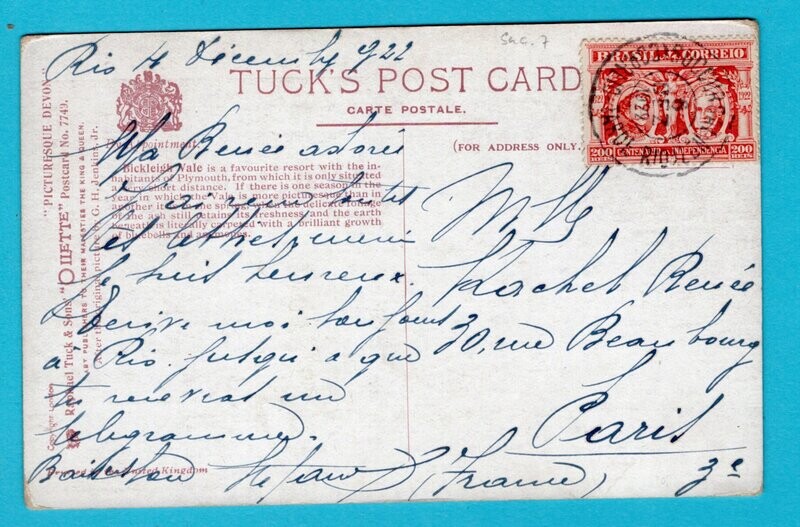 Rio 4 Décembre 1922
Sac. 7
TUCK'S POST CARD
CARTE POSTALE.
(FOR ADDRESS ONLY.)
BRASIL CORREIO
200 REIS CENTENARIO DA INDEPENDENCIA 200 REIS
By Appointment.
Bickleigh Vale is a favourite resort with the in-
habitants of Plymouth, from which it is only situated
a very short distance. If there is one season in the
year in which the Vale is more picturesque than in
another it is the spring, when the delicate foliage
of the ash still retains its freshness, and the earth
beneath is literally carpeted with a brilliant growth
of bluebells and anemones.
Ma Renée adorée
J'ai reçu toutes
les lettres
je suis heureux.
Ecrive moi toujours
a Rio jusqu'a que
tu un
telegramme.
Mlle
Rachel Renée
30, rue Beaubourg
Paris
(France) 3e
"PICTURESQUE DEVON"
Raphael Tuck & Sons' "OILETTE" Postcard No. 7749.
ART PUBLISHERS TO THEIR MAJESTIES THE KING & QUEEN.
After the original picture by G. H. Jenkins, Jr.
Copyright London
Printed in the United Kingdom